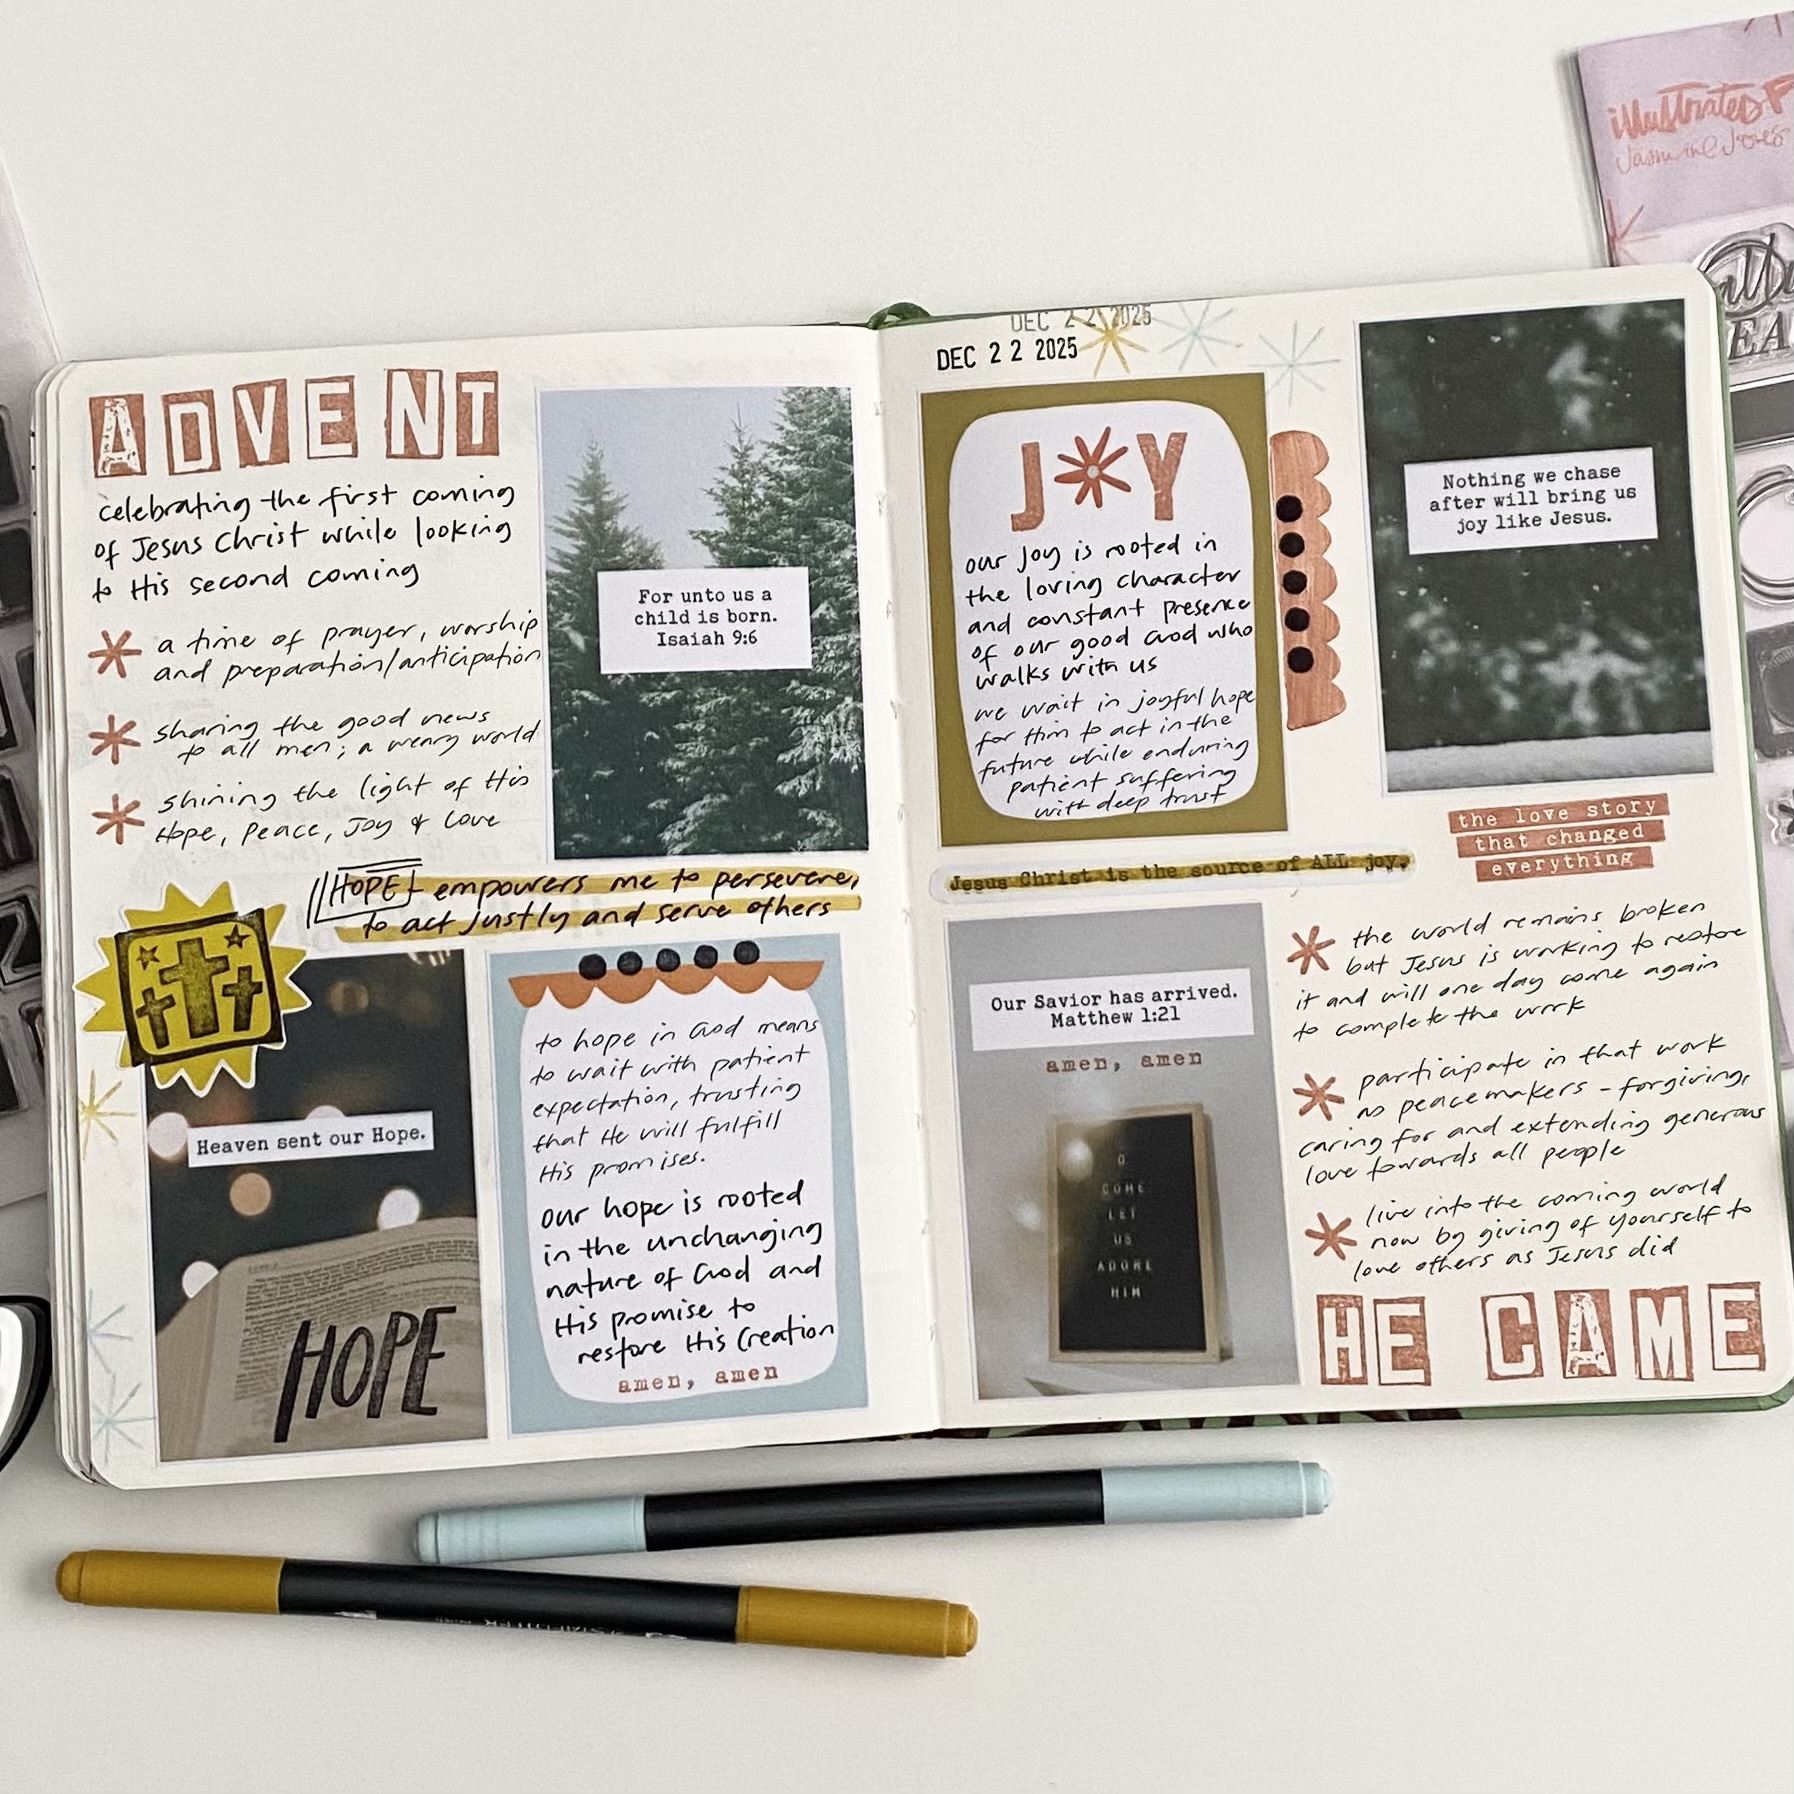 ADVENT
celebrating the first coming
of Jesus Christ while looking
to His second coming
a time of prayer, worship
and preparation/anticipation
sharing the good news
to all men; a weary world
shining the light of His
Hope, Peace, Joy & Love
For unto us a
child is born.
Isaiah 9:6
HOPE - empowers me to persevere,
to act justly and serve others
Heaven sent our Hope.
HOPE
to hope in God means
to wait with patient
expectation, trusting
that He will fulfill
His promises.
our hope is rooted
in the unchanging
nature of God and
His promise to
restore His Creation
amen, amen
DEC 22 2025
DEC 22 2025
JOY
our joy is rooted in
the loving character
and constant presence
of our good God who
walks with us
we wait in joyful hope
for Him to act in the
future while enduring
patient suffering
with deep trust
Nothing we chase
after will bring us
joy like Jesus.
the love story
that changed
everything
Jesus Christ is the source of ALL joy.
Our Savior has arrived.
Matthew 1:21
amen, amen
O
COME
LET
US
ADORE
HIM
the world remains broken
but Jesus is working to restore
it and will one day come again
to complete the work
participate in that work
as peacemakers - forgiving,
caring for and extending generous
love towards all people
live into the coming world
now by giving of yourself to
love others as Jesus did
HE CAME
illustrated
Jasmine Jones